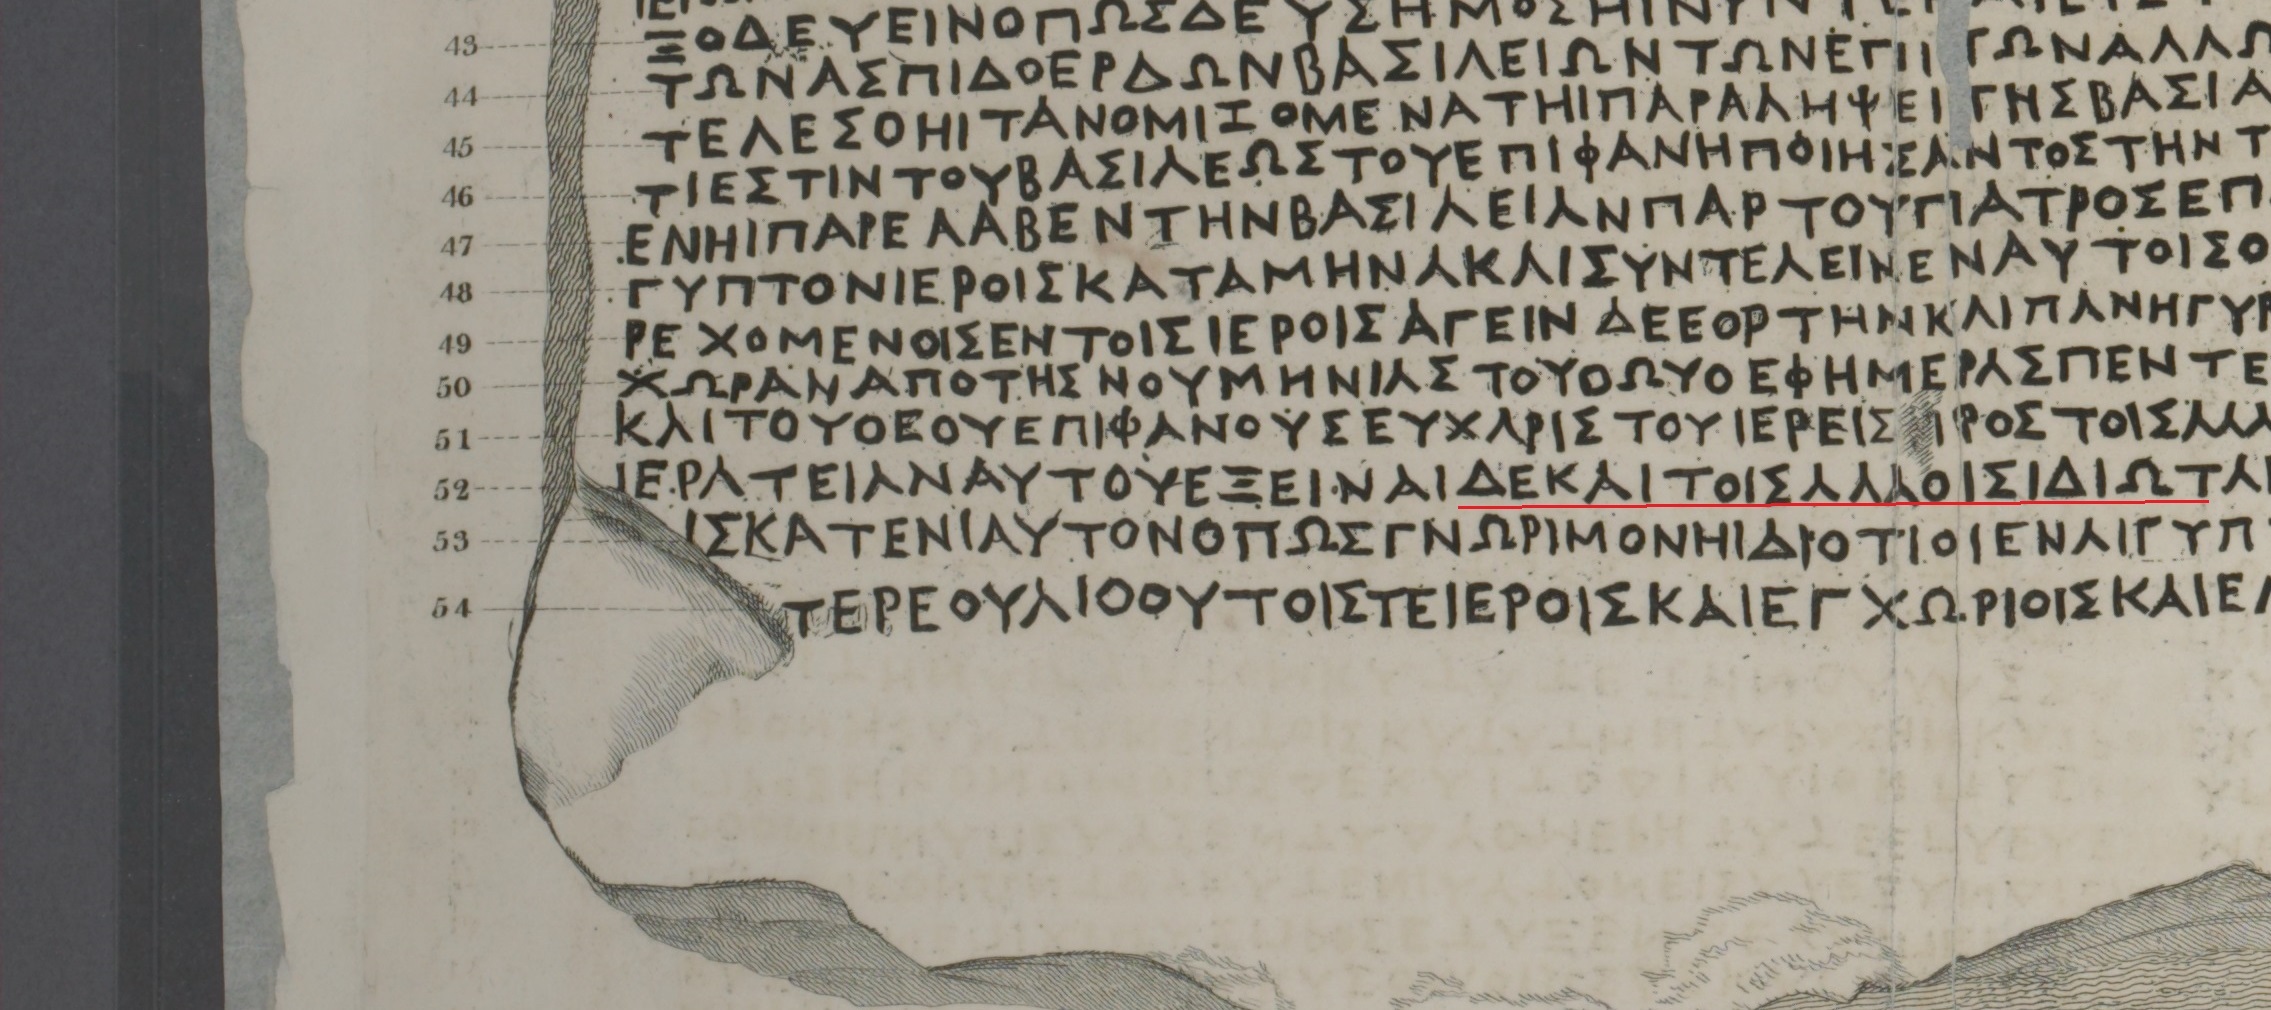 43 ΞΟΔΕΥΕΙΝΟΠΩΣΔΕΥΣΗΜΟΣΗΙΝΥΝΤΕ
44 ΤΩΝΑΣΠΙΔΟΕΡΔΩΝΒΑΣΙΛΕΙΩΝΤΩΝΕΠΙ ΤΩΝΑΛΛΩ
45 ΤΕΛΕΣΘΗΙΤΑΝΟΜΙΖΟΜΕΝΑΤΗΙΠΑΡΑΛΗΨΕΙΤΗΣΒΑΣΙΛ
46 ΤΙΕΣΤΙΝΤΟΥΒΑΣΙΛΕΩΣΤΟΥΕΠΙΦΑΝΗΠΟΙΗΣΑΝΤΟΣΤΗΝΤ
47 ΕΝΗΙΠΑΡΕΛΑΒΕΝΤΗΝΒΑΣΙΛΕΙΑΝΠΑΡΤΟΥΠΑΤΡΟΣΕΠ
48 ΓΥΠΤΟΝΙΕΡΟΙΣΚΑΤΑΜΗΝΑΚΑΙΣΥΝΤΕΛΕΙΝΕΝΑΥΤΟΙΣΘ
49 ΡΕΧΟΜΕΝΟΙΣΕΝΤΟΙΣΙΕΡΟΙΣΑΓΕΙΝΔΕΕΟΡΤΗΝΚΑΙΠΑΝΗΓΥΡ
50 ΧΩΡΑΝΑΠΟΤΗΣΝΟΥΜΗΝΙΑΣΤΟΥΘΩΥΘΕΦΗΜΕΡΑΣΠΕΝΤΕ
51 ΚΑΙΤΟΥΘΕΟΥΕΠΙΦΑΝΟΥΣΕΥΧΑΡΙΣΤΟΥΙΕΡΕΙΣΠΡΟΣΤΟΙΣΑΛΛ
52 ΙΕΡΑΤΕΙΑΝΑΥΤΟΥΕΞΕΙΝΑΙΔΕΚΑΙΤΟΙΣΑΛΛΟΙΣΙΔΙΩΤΑΙ
53 ΙΣΚΑΤΕΝΙΑΥΤΟΝΟΠΩΣΓΝΩΡΙΜΟΝΗΙΔΙΟΤΙΟΙΕΝΑΙΓΥΠ
54 ΤΕΡΕΟΥΛΙΘΟΥΤΟΙΣΤΕΙΕΡΟΙΣΚΑΙΕΓΧΩΡΙΟΙΣΚΑΙΕΛ